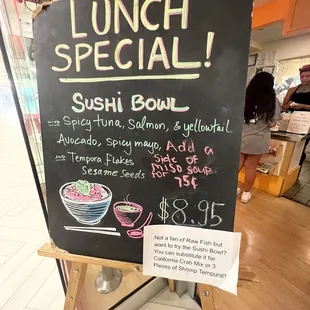 LUNCH
SPECIAL!
SUSHI BOWL
WITH Spicy tuna, Salmon, & yellowtail
Avocado, Spicy mayo,
AND Tempura Flakes
Sesame Seeds
Add a
Side of
miso soup
for
75¢
$8.95
Not a fan of Raw Fish but
want to try the Sushi Bowl?
You can substitute it for
California Crab Mix or 3
Pieces of Shrimp Tempura!!